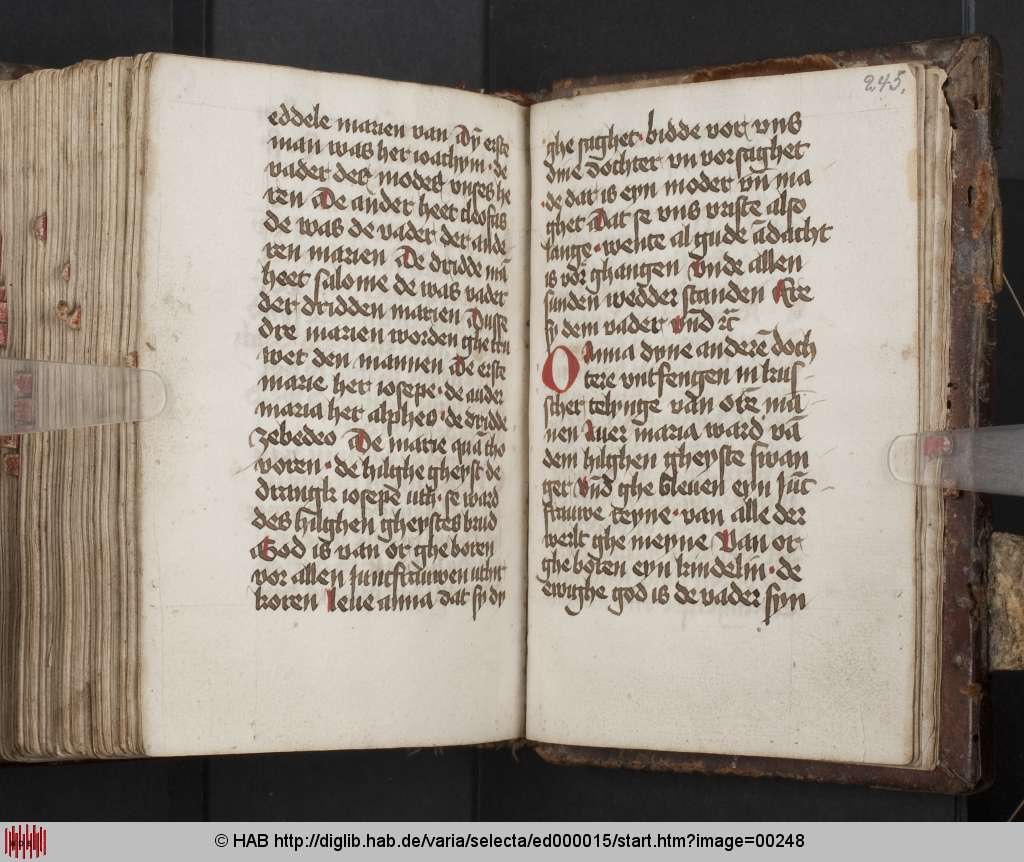 eddele marien van Dy̅ erste
man was her ioachym · de
vader des moders vnses he
ren De ander heer cleofas
de was de vader der ande
ren marien De dridde ma̅
heet salome de was vader
der dridden marien Dusse
dre marien worden ghetru
wet den mannen De erste
marie her iosepe · de ander
maria her alpheo · de dridde
zebedeo De marie qua̅ tho
voren · de hilghe gheyst de
drangk iosepe vth · se ward
des hilghen gheystes brud
God is van or ghe boren
vor allen Juncfrauwen uthir
koren leue anna dat sy dy
245.
ghe saghet · bidde vor vns
dine dochter vn vorsaghet
de dat is eyn moder vn̅ ma
ghet Dat se vns vriste also
lange · wente al gude a̅dacht
is vor ghangen Vnde allen
sunden wedder standen Ere
sy dem vader Vn̅d rc̅
O Anna dyne andere̅ doch
tere vntfengen in krus
scher telynge van ore̅ ma̅
nen Auer maria ward va̅
dem hilghen gheyste swan
ger Vn̅d ghe bleuen eyn Ju̅c
frauwe reyne · van alle der
werlt ghe meyne Van or
ghe boren eyn kindelin · de
ewighe god is de vader syn
© HAB http://diglib.hab.de/varia/selecta/ed000015/start.htm?image=00248